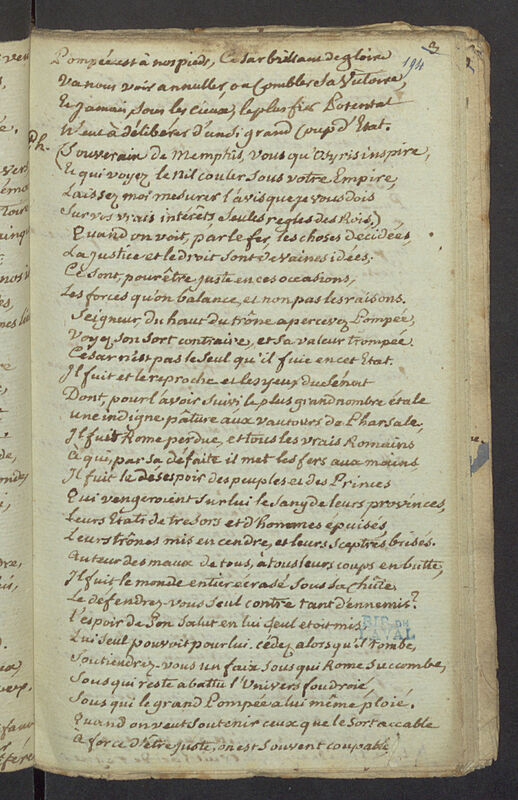 3
194
Pompée est à nos pieds, Cesar brillant de gloire
Va nous voir annuller ou combler sa Victoire,
Et jamais sous les cieux, le plus fier Potentat
N'eut à délibérer d'un si grand Coup d'Etat.
Ph.
(Souverain de Memphis, vous qu'Osyris inspire,
Et qui voyez le Nil couler sous votre Empire,
Laissez moi mesurer l'avis que je vous dois
Sur vos vrais intérêts seules regles des Rois,)
Quand on voit, par le fer, les choses décidées,
La justice et le droit sont de vaines idées.
Ce sont, pour être juste en ces occasions,
Les forces qu'on balance, et non pas les raisons.
Seigneur, du haut du trône apercevez Pompée,
Voyez son Sort contraire, et sa valeur trompée
Cesar n'est pas le seul qu'il fuie en cet Etat.
Il fuit et le reproche et les yeux du Sénat
Dont, pour l'avoir suivi le plus grand nombre étale
une indigne pâture aux vautours de Pharsale,
Il fuit Rome perdue, et tous les vrais Romains
à qui, par sa défaite il met les fers aux mains
Il fuit le désespoir des peuples et des Princes
Qui vengeroient sur lui le sang de leurs provinces,
Leurs Etats de tresors et d'hommes épuisés
Leurs trônes mis en cendre, et leurs sceptres brisés.
Auteur des maux de tous, à tous leurs coups en butte,
Il fuit le monde entier écrasé sous sa chûte.
Le défendrez-vous seul contre tant d'ennemis?
l'espoir de son salut en lui seul etoit mis,
Lui seul pouvoit pour lui. cédez alors qu'il tombe,
Soutiendrez-vous un faix sous qui Rome Succombe,
Sous qui reste abattu l'Univers foudroié
Sous qui le grand Pompée a lui même ploié.
Quand on veut soutenir ceux que le sort accable
À force d'être juste, on est souvent coupable
BIB. DE
LAVAL